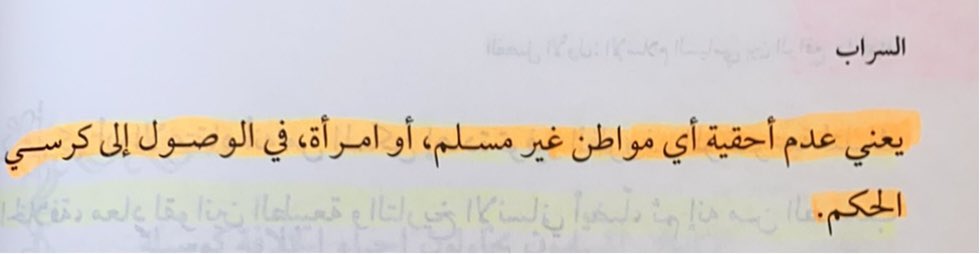 السراب
يعني عدم أحقية أي مواطن غير مسلم، أو امرأة، في الوصول إلى كرسي
الحكم.